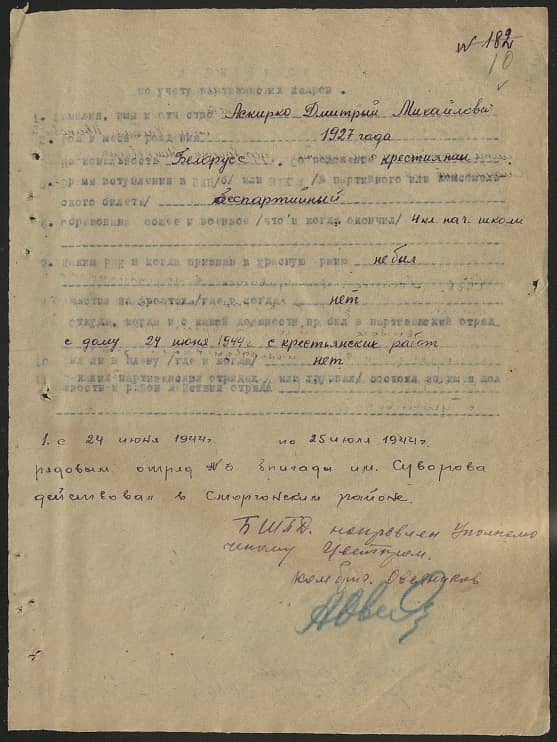 № 182
10
по учету партизанских кадров.
1. Фамилия, имя и отчество Аскирко Дмитрий Михайлов
2. Год и место рождения 1927 года
Национальность Белорусс соцположение крестиянин
Время вступления в ВКП/б/ или ВЛКСМ /№ партийного или комсомоль-
ского билета/ беспартийный
6. Образование общее и военное /что и когда окончил/ 4 кл. нач. школи
Каким РВК и когда призван в Красную армию не был
Участие на фронтах /где и когда/ нет
Откуда, когда и с какой должности прибыл в партизанский отряд
с дому 24 июня 1944г с крестьянских работ
10 Был ли в плену /где и когда/ нет
В каких партизанских отрядах или группах/ состоял
и район действия отряда
1. с 24 июня 1944г. по 25 июля 1944г.
рядовым отряд №3 бригады им. Суворова
действовал в Сморгонским районе.
БШПД. направлен
комбриг.